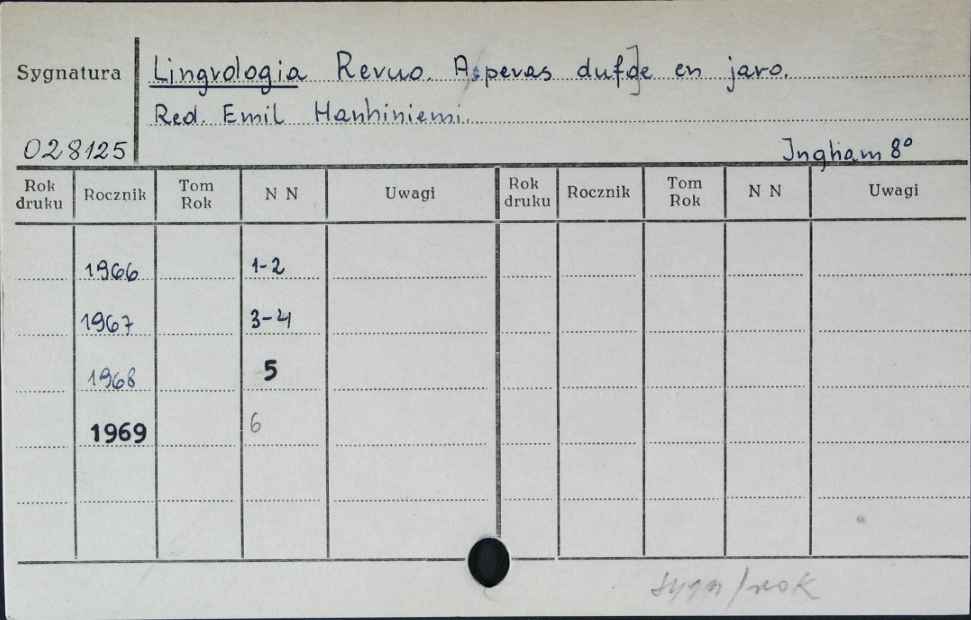 Sygnatura
Lingvologia Revuo. Aperas dufoje en jaro.
Red. Emil Hanhiniemi.
028125
Ingham 8°
Rok druku Rocznik Tom Rok N N Uwagi Rok druku Rocznik Tom Rok N N Uwagi
1966 1-2
1967 3-4
1968 5
1969 6
sygn/rok